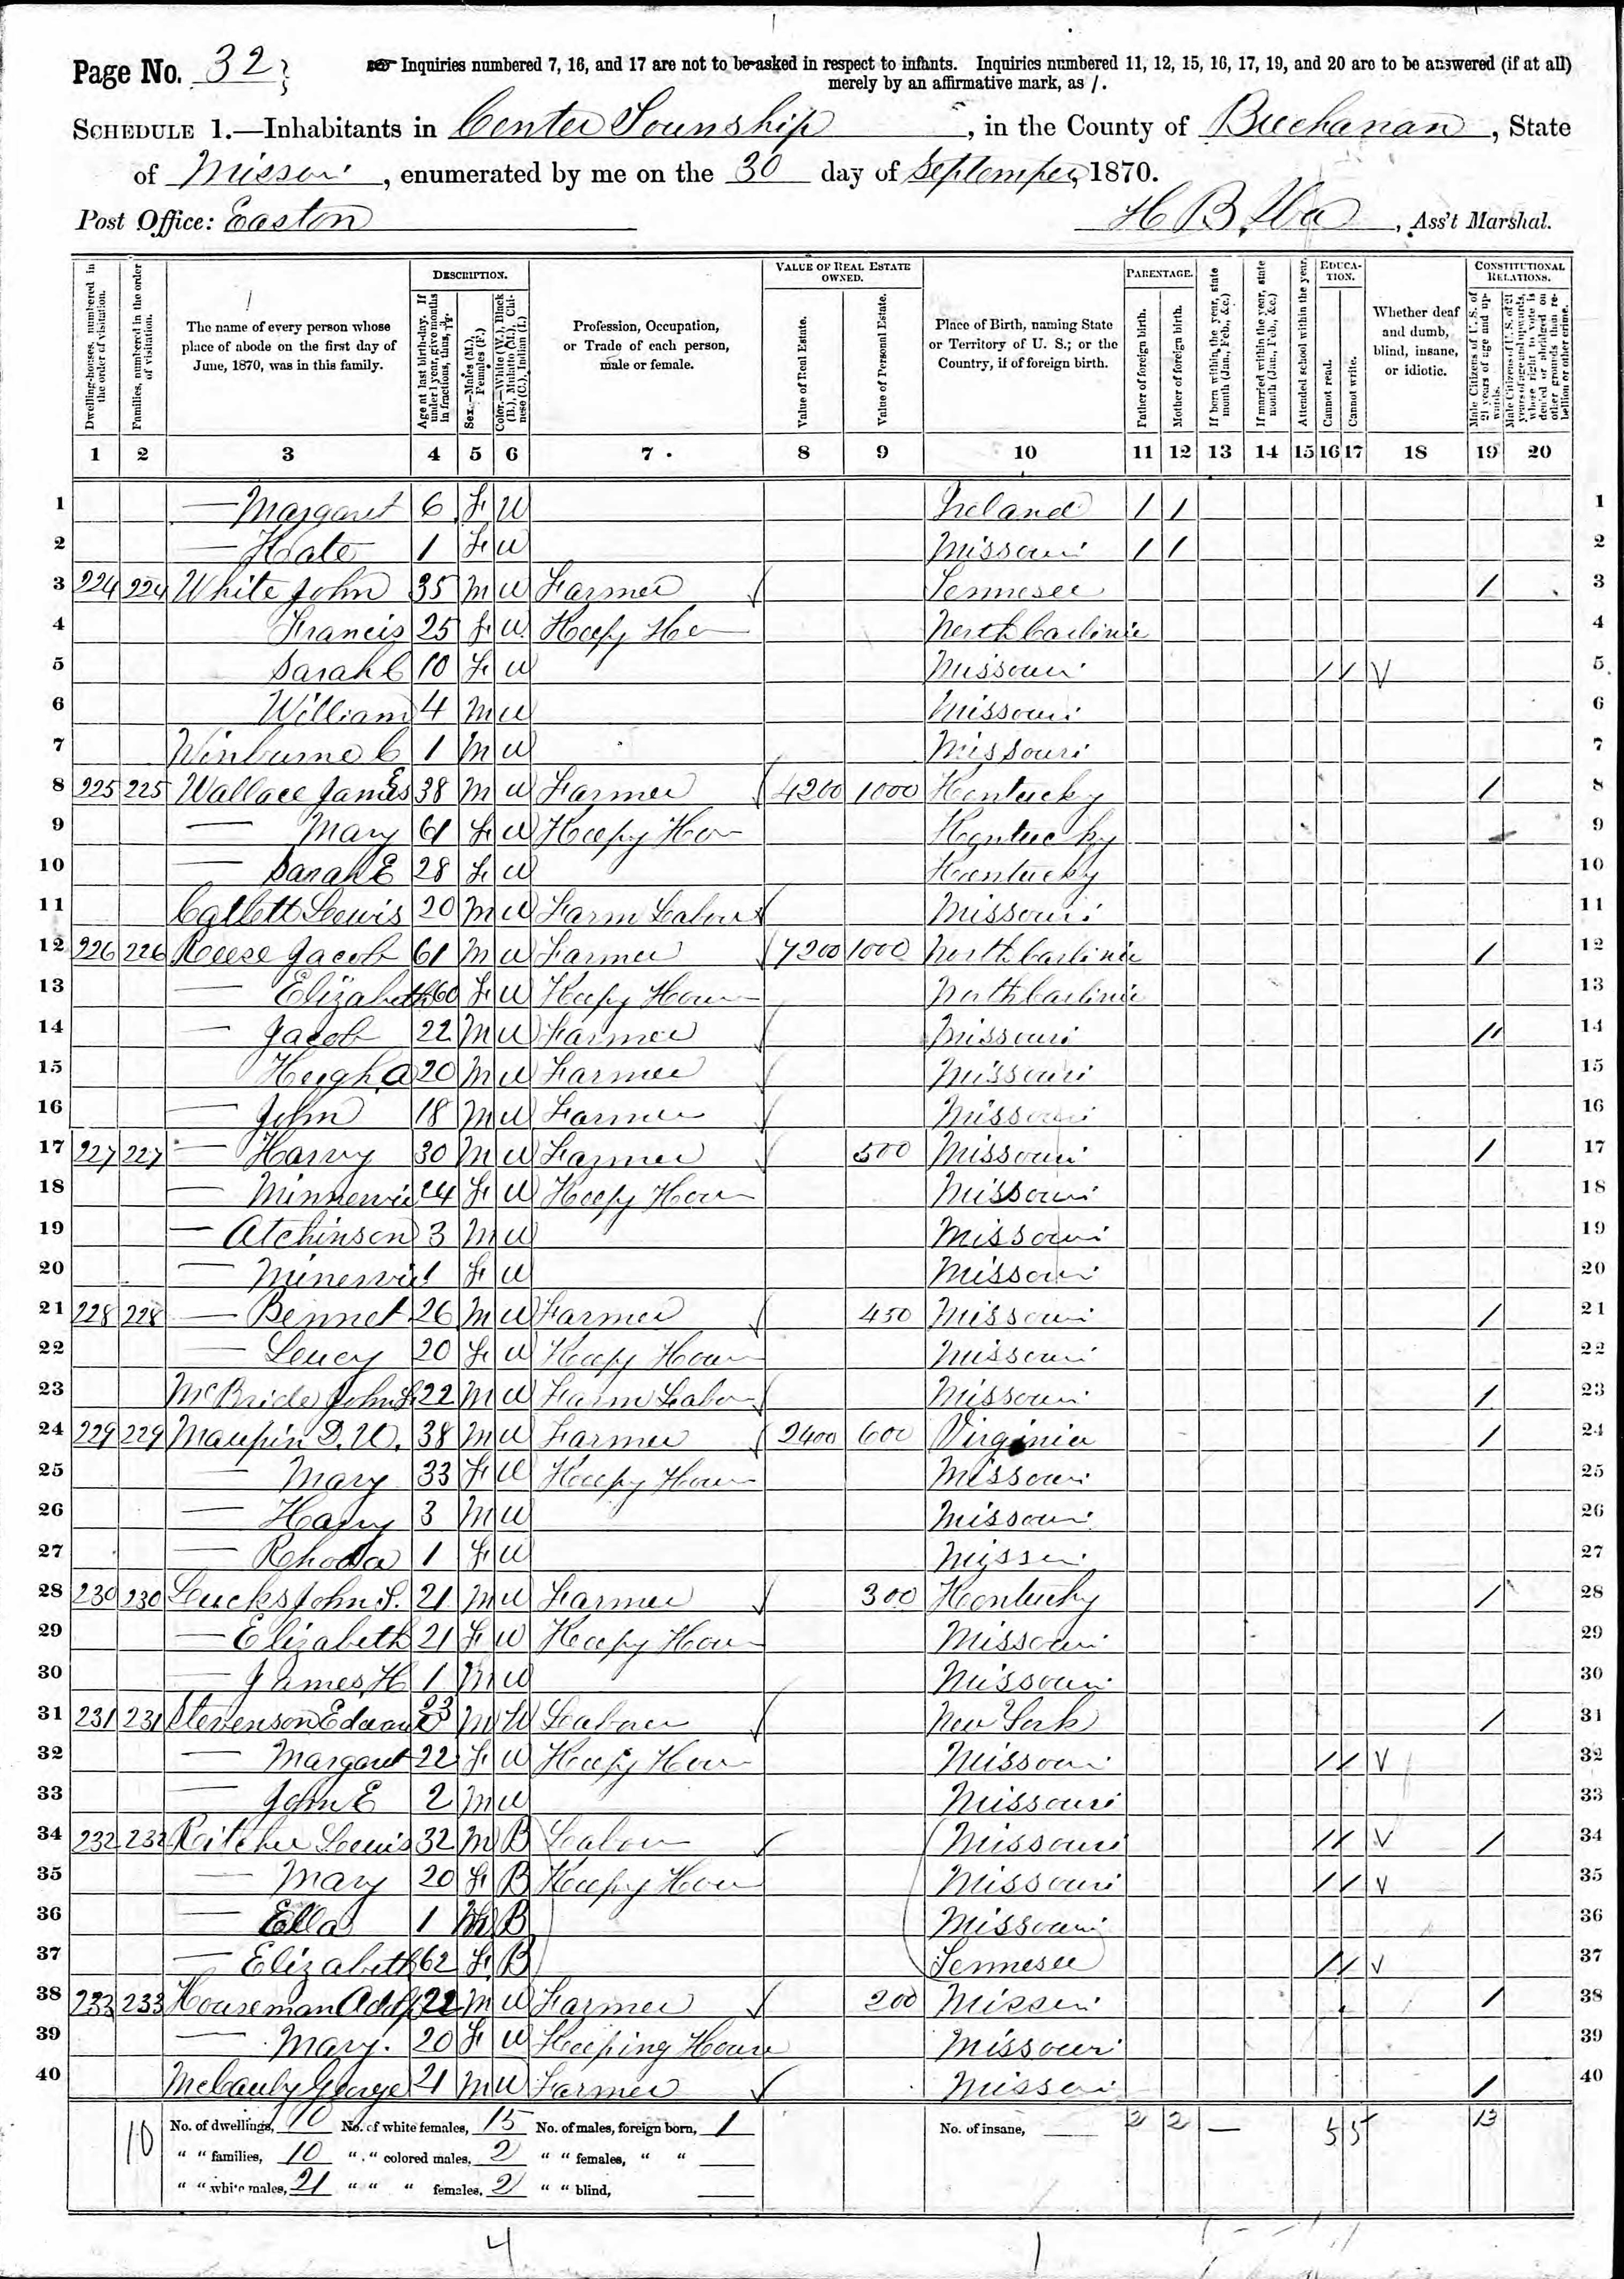 Page No. 32
Inquiries numbered 7, 16, and 17 are not to be asked in respect to infants. Inquiries numbered 11, 12, 15, 16, 17, 19, and 20 are to be answered (if at all)
merely by an affirmative mark, as /.
SCHEDULE 1.—Inhabitants in Center Township, in the County of Buchanan, State
of Missouri, enumerated by me on the 30 day of September, 1870.
Post Office: Easton H B, Ass't Marshal.
Dwelling-houses, numbered in the order of visitation.
Families, numbered in the order of visitation.
The name of every person whose place of abode on the first day of June, 1870, was in this family.
DESCRIPTION.
Age at last birth-day. If under 1 year, give months in fractions, thus,
Sex.—Males (M.), Females (F.)
Color.—White (W.), Black (B.), Mulatto (M.), Chinese (C.), Indian (I.)
Profession, Occupation, or Trade of each person, male or female.
VALUE OF REAL ESTATE OWNED.
Value of Real Estate.
Value of Personal Estate.
Place of Birth, naming State or Territory of U. S.; or the Country, if of foreign birth.
PARENTAGE.
Father of foreign birth.
Mother of foreign birth.
If born within the year, state month (Jan., Feb., &c.)
If married within the year, state month (Jan., Feb., &c.)
Attended school within the year.
EDUCATION.
Cannot read.
Cannot write.
Whether deaf and dumb, blind, insane, or idiotic.
CONSTITUTIONAL RELATIONS.
Male Citizens of U. S. of 21 years of age and upwards.
Male Citizens of U. S. of 21 years of age and upwards, whose right to vote is denied or abridged on other grounds than rebellion or other crime.
1 2 3 4 5 6 7 8 9 10 11 12 13 14 15 16 17 18 19 20
1 — Margaret 6 F W Ireland / / 1
2 — Kate 1 F W Missouri / / 2
3 224 224 White John 35 M W Farmer Tennesee / 3
4 Francis 25 F W Keepg Ho North Carlinia 4
5 Sarah C 10 F W Missouri / / V 5
6 William 4 M W Missouri 6
7 Winburne C 1 M W Missouri 7
8 225 225 Wallace James E 38 M W Farmer 4200 1000 Kentucky / 8
9 — Mary 61 F W Keepg Hou Kentucky 9
10 — Sarah E 28 F W Kentucky 10
11 Catlett Lewis 20 M W Farm Labour Missouri 11
12 226 226 Reese Jacob 61 M W Farmer 7200 1000 North Carlinia / 12
13 — Elizabeth 60 F W Keepg Hou North Carlinia 13
14 — Jacob 22 M W Farmer Missouri // 14
15 — Hugh A 20 M W Farmer Missouri 15
16 — John 18 M W Farmer Missouri 16
17 227 227 — Harvy 30 M W Farmer 500 Missouri / 17
18 — Minnervia 24 F W Keepg Hou Missouri 18
19 — Atchinson 3 M W Missouri 19
20 — Minervia 1 F W Missouri 20
21 228 228 — Bennet 26 M W Farmer 450 Missouri / 21
22 — Lucy 20 F W Keepg Hou Missouri 22
23 McBride John 22 M W Farm Labor Missouri / 23
24 229 229 Maupin D. W. 38 M W Farmer 2400 600 Virginia / 24
25 — Mary 33 F W Keepg Hou Missouri 25
26 — Harry 3 M W Missouri 26
27 — Rhoda 1 F W Missouri 27
28 230 230 Lucks John S. 21 M W Farmer 300 Kentucky / 28
29 — Elizabeth 21 F W Keepg Hou Missouri 29
30 — James H 1 M W Missouri 30
31 231 231 Stevenson Edward 23 M W Labour New York / 31
32 — Margaret 22 F W Keepg Hou Missouri / / V 32
33 — John E 2 M W Missouri 33
34 232 232 Lewis 32 M B Labour Missouri / / V / 34
35 — Mary 20 F B Keepg Hou Missouri / / V 35
36 — Ella 1 B Missouri 36
37 — Elizabeth 62 F B Tennesee / / V 37
38 233 233 Houseman Adolf 22 M W Farmer 200 Missouri / 38
39 — Mary. 20 F W Keeping House Missouri 39
40 McCauly George 21 M W Farmer Missouri / 40
10 No. of dwellings, 10 No. of white females, 15 No. of males, foreign born, 1 No. of insane, 2 2 — 5 5 13
" " families, 10 " " colored males, 2 " " females, " "
" " white males, 21 " " " females, 2 " " blind,
4 1